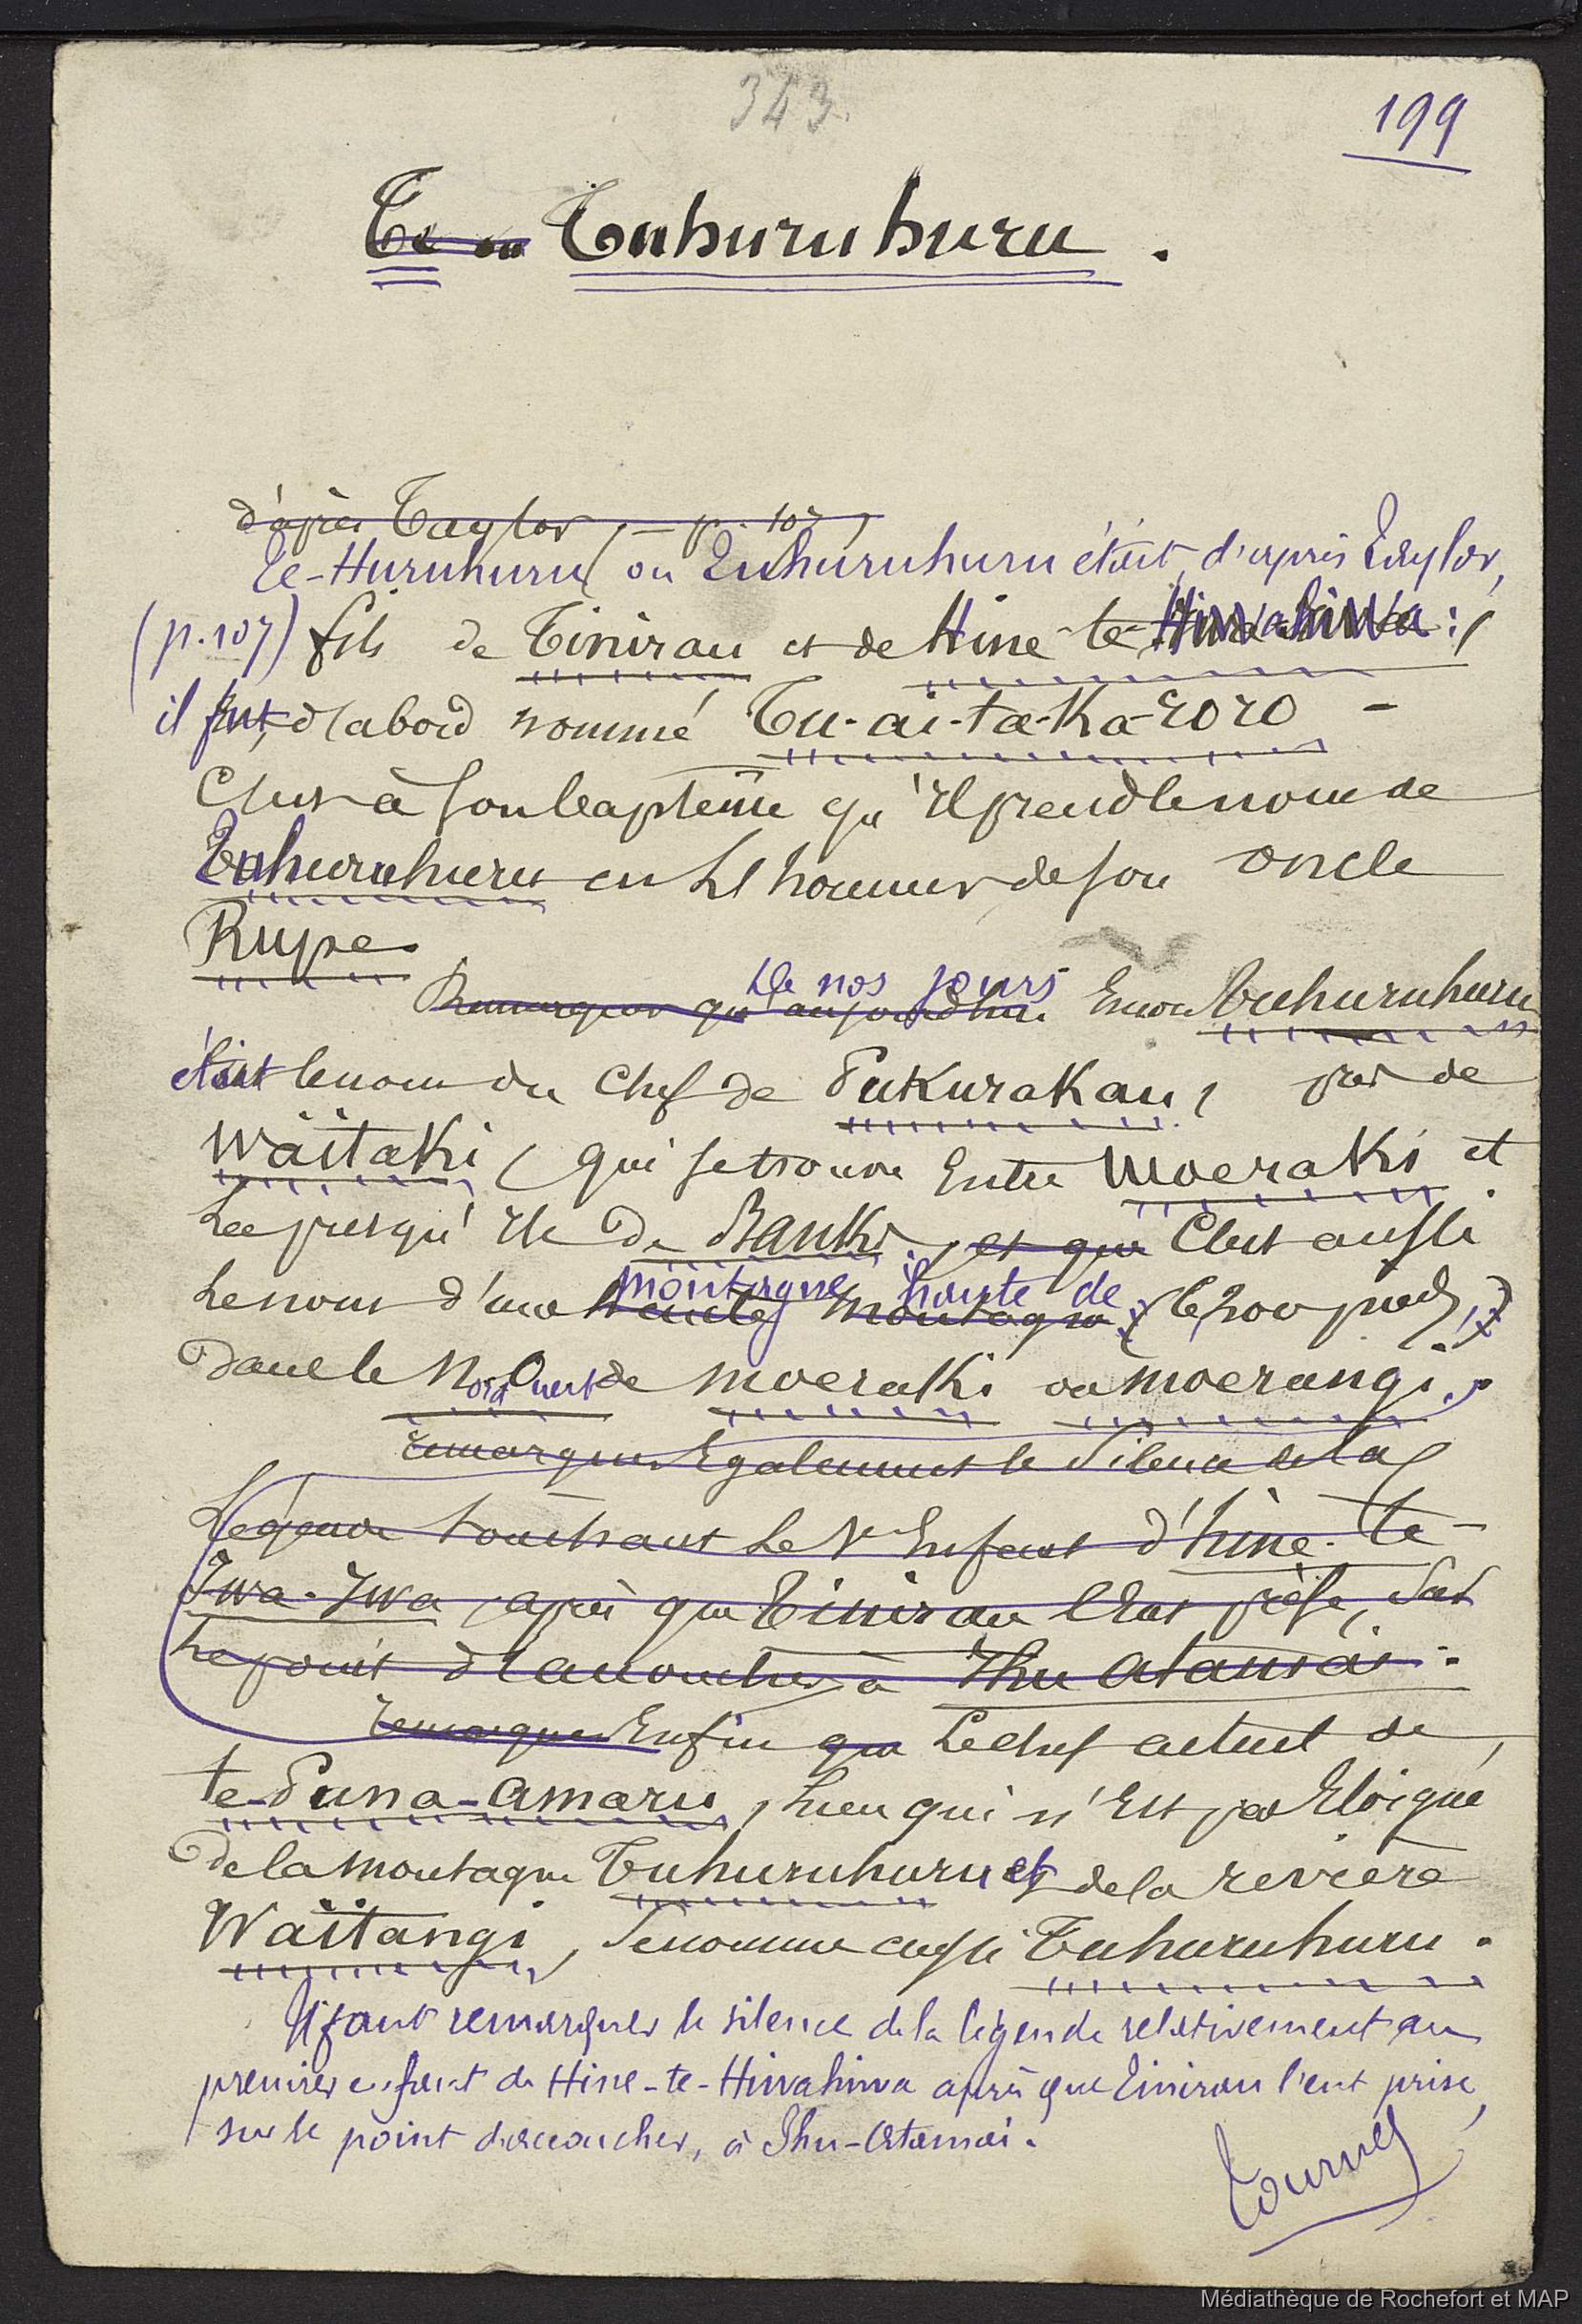 343.
199
Te ou Tuhuruhuru.
d'après Taylor, — p. 107,
Te-Huruhuru ou Tuhuruhuru était, d'après Taylor,
(p. 107) fils de Tinirau et de Hine-te-Hiwahiwa:
il fut, d'abord nommé Tu-ai-ta-Ka-roro -
C'est à son baptême qu'il prend le nom de
Tuhuruhuru en l'honneur de son oncle
Rupe.
De nos jours
Remarquer qu'aujourd'hui Encore Tuhuruhuru
était le nom du Chef de PuKuraKau, près de
WaïtaKi (qui se trouve Entre MoeraKi et
La presqu'île de Banks. et que C'est aussi
montagne haute de
Le nom d'une haute montagne (6,200 pieds,)
dans le Nord Ouest de MoeraKi ou Moerangi.
remarquer Egalement le Silence de la
Légende touchant le 1er Enfant d'hine-te-
Iwa-Iwa, après que Tinirau l'Eut prise, sur
Le point d'accoucher, à Ihu Atamaï.
remarquer Enfin que Le chef actuel de
te-Puna-amaru, Lieu qui n'Est pas Eloigné
De la montagne Tuhuruhuru et de la rivière
Waïtangi, Se nomme aussi Tuhuruhuru.
Il faut remarquer le silence de la légende relativement au
premier enfant de Hine-te-Hiwahiwa après que Tinirau l'eut prise,
sur le point d'accoucher, à Ihu-Atamaï.
Tournez
Médiathèque de Rochefort et MAP